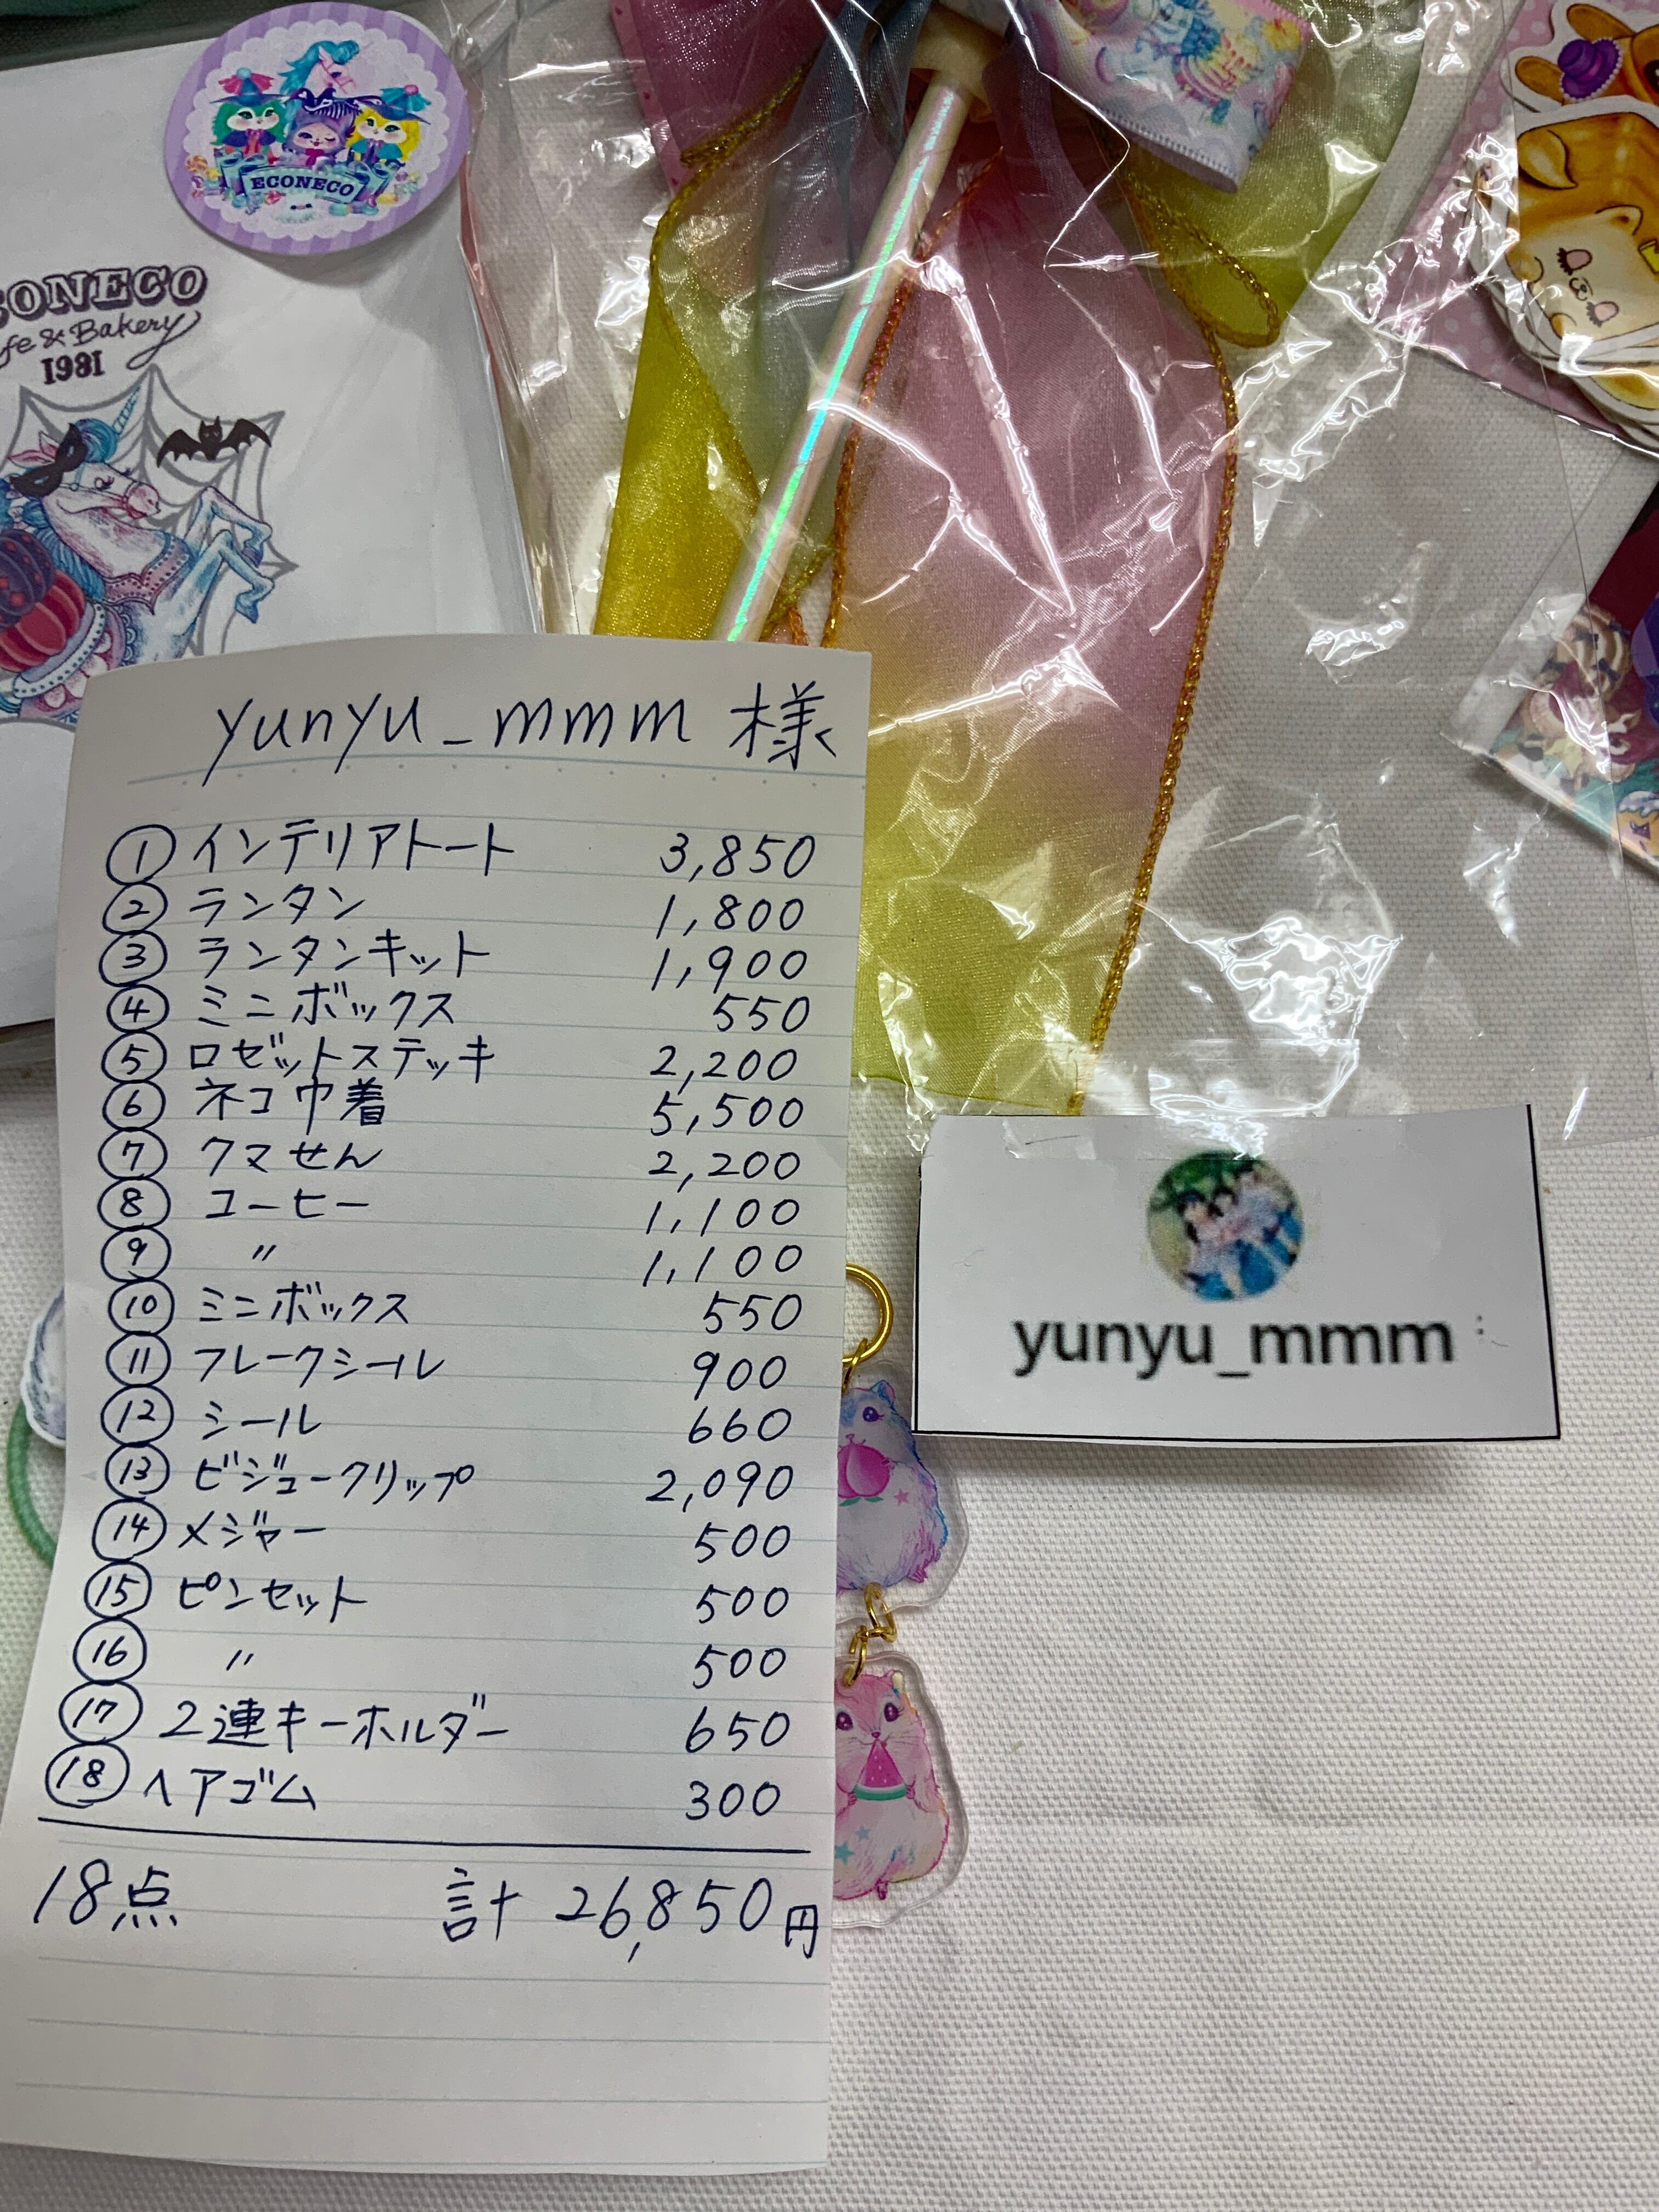 ECONECO
ECONECO
Cafe & Bakery
1981
yunyu_mmm 様
① インテリアトート 3,850
② ランタン 1,800
③ ランタンキット 1,900
④ ミニボックス 550
⑤ ロゼットステッキ 2,200
⑥ ネコ巾着 5,500
⑦ クマせん 2,200
⑧ コーヒー 1,100
⑨ 〃 1,100
⑩ ミニボックス 550
⑪ フレークシール 900
⑫ シール 660
⑬ ビジュークリップ 2,090
⑭ メジャー 500
⑮ ピンセット 500
⑯ 〃 500
⑰ 2連キーホルダー 650
⑱ ヘアゴム 300
18点 計 26,850円
yunyu_mmm